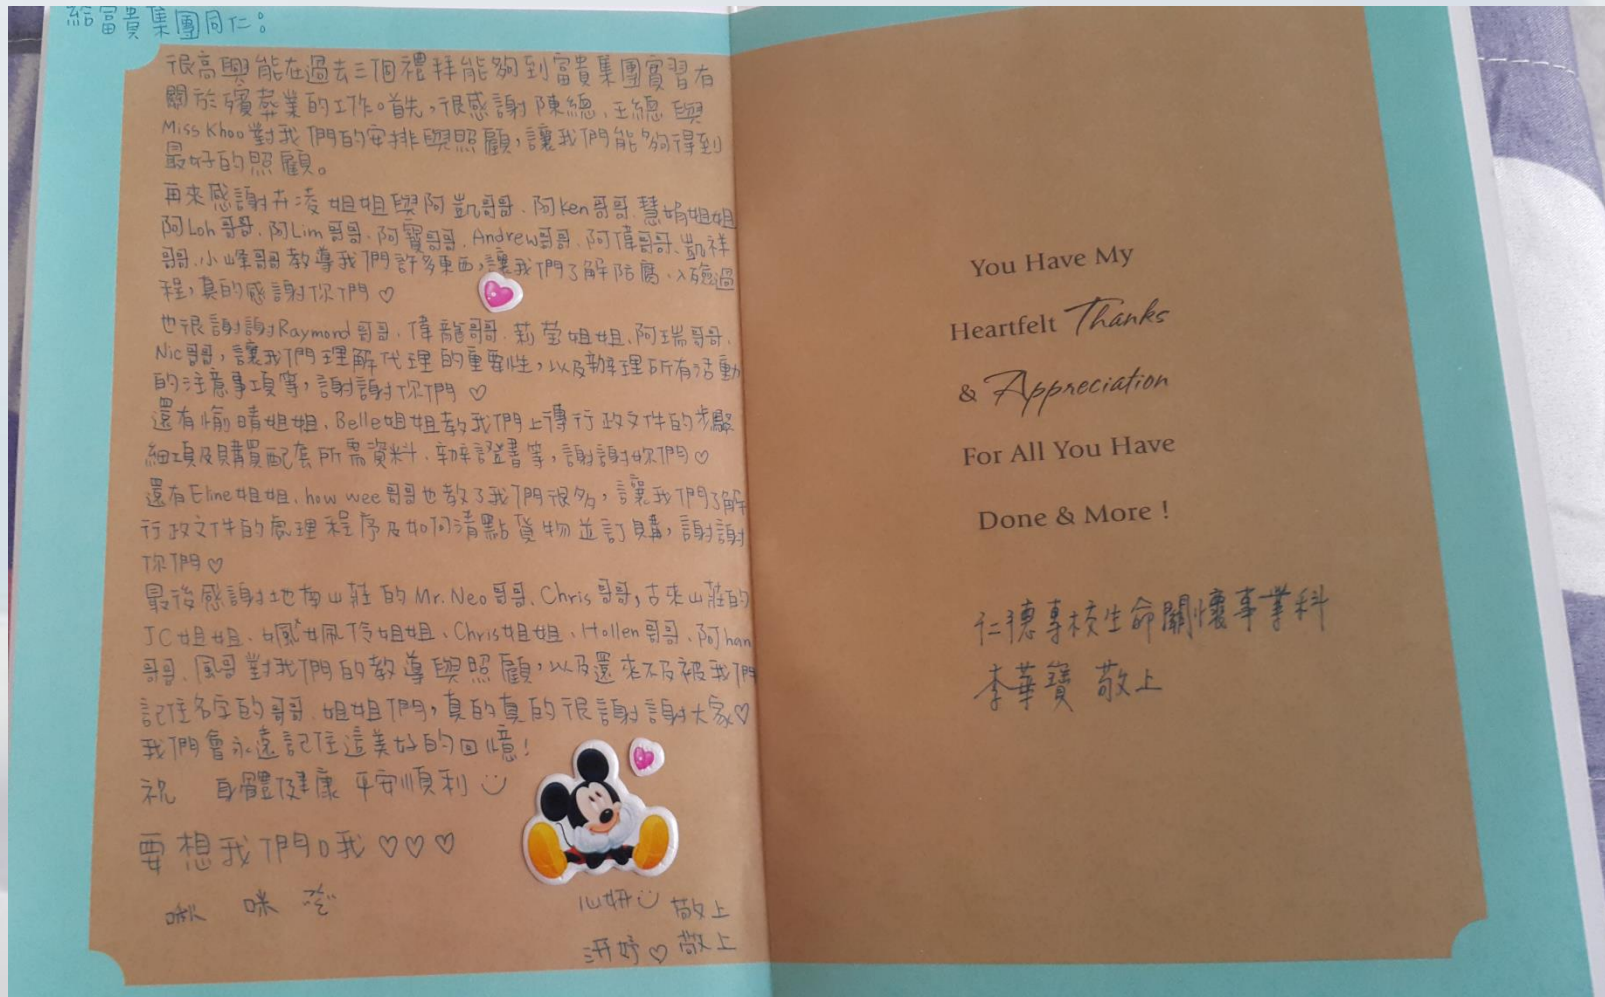 給富貴集團同仁：
很高興能在過去三個禮拜能夠到富貴集團實習有
關於殯葬業的工作。首先，很感謝陳總、王總與
Miss Khoo對我們的安排與照顧，讓我們能夠得到
最好的照顧。
再來感謝卉凌姐姐與阿凱哥哥、阿Ken哥哥、慧娟姐姐
阿Loh哥哥、阿Lim哥哥、阿寶哥哥、Andrew哥哥、阿偉哥哥、凱祥
哥哥、小峰哥哥教導我們許多東西，讓我們了解防腐、入殮過
程，真的感謝你們♡
也很謝謝Raymond哥哥、偉龍哥哥、莉瑩姐姐、阿瑞哥哥、
Nic哥哥，讓我們理解代理的重要性，以及辦理所有活動
的注意事項等，謝謝你們♡
還有愉晴姐姐、Belle姐姐教我們上傳行政文件的步驟
細項及購買配套所需資料、辦證書等，謝謝妳們♡
還有Eline姐姐、how wee哥哥也教了我們很多，讓我們了解
行政文件的處理程序及如何清點貨物並訂購，謝謝
你們♡
最後感謝地南山莊的Mr. Neo哥哥、Chris哥哥，古來山莊的
JC姐姐、姵伶姐姐、Chris姐姐、Hollen哥哥、阿han
哥哥、風哥對我們的教導與照顧，以及還來不及被我們
記住名字的哥哥、姐姐們，真的真的很謝謝大家♡
我們會永遠記住這美好的回憶！
祝 身體健康 平安順利
要想我們哦♡♡♡
啾 咪
心妍 敬上
涊妤♡ 敬上
You Have My
Heartfelt Thanks
& Appreciation
For All You Have
Done & More !
仁德專校生命關懷事業科
李華寶 敬上